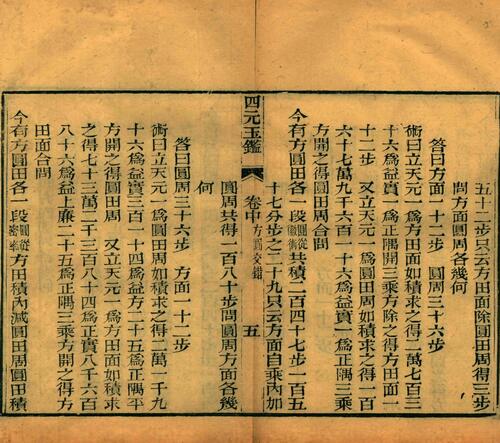 五十二步只云方面除圓田周得三步
問方面圓周各幾何
答曰方面一十二步　圓周三十六步
術曰立天元一爲方田面如積求之得二萬七百三
十六爲益實一爲正隅開三乘方除之得方田面一
十二步　又立天元一爲圓田周如積求之得一百
六十七萬九千六百一十六爲益實一爲正隅三乘
方開之得圓田周合問
今有方圓田各一段圓從徽術共積二百四十七步一百五
十七分步之二十九只云方面自乘內加
四元玉鑑　卷中　方圓交錯　五
圓周共得一百八十步問圓周方面各幾
何
答曰圓周三十六步　方面一十二步
術曰立天元一爲圓田周如積求之得二萬一千九
十六爲益實三百一十四爲益方二十五爲正隅平
方開之得圓田周　又立天元一爲方田面如積求
之得七十三萬二千三百八十四爲正實八千六百
八十六爲益上廉二十五爲正隅三乘方開之得方
田面合問
今有方圓田各一段圓從密率方田積內減圓田周圓田積